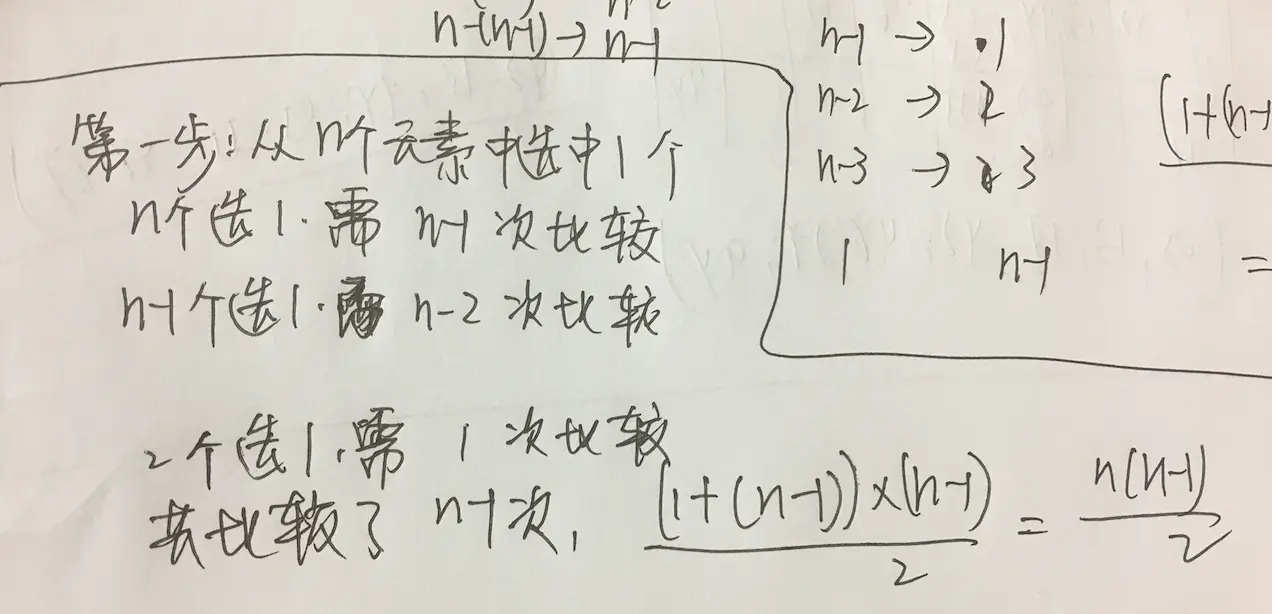 n-2
n-(n-1) → n-1
n-1 → 1
n-2 → 2
n-3 → 3
1 n-1
(1+(n-1
=
第一步: 从n个元素中选中1个
n个选1.需 n-1 次比较
n-1个选1.需 n-2 次比较
2个选1.需 1 次比较
共比较了 n-1次, (1+(n-1))×(n-1) / 2 = n(n-1) / 2